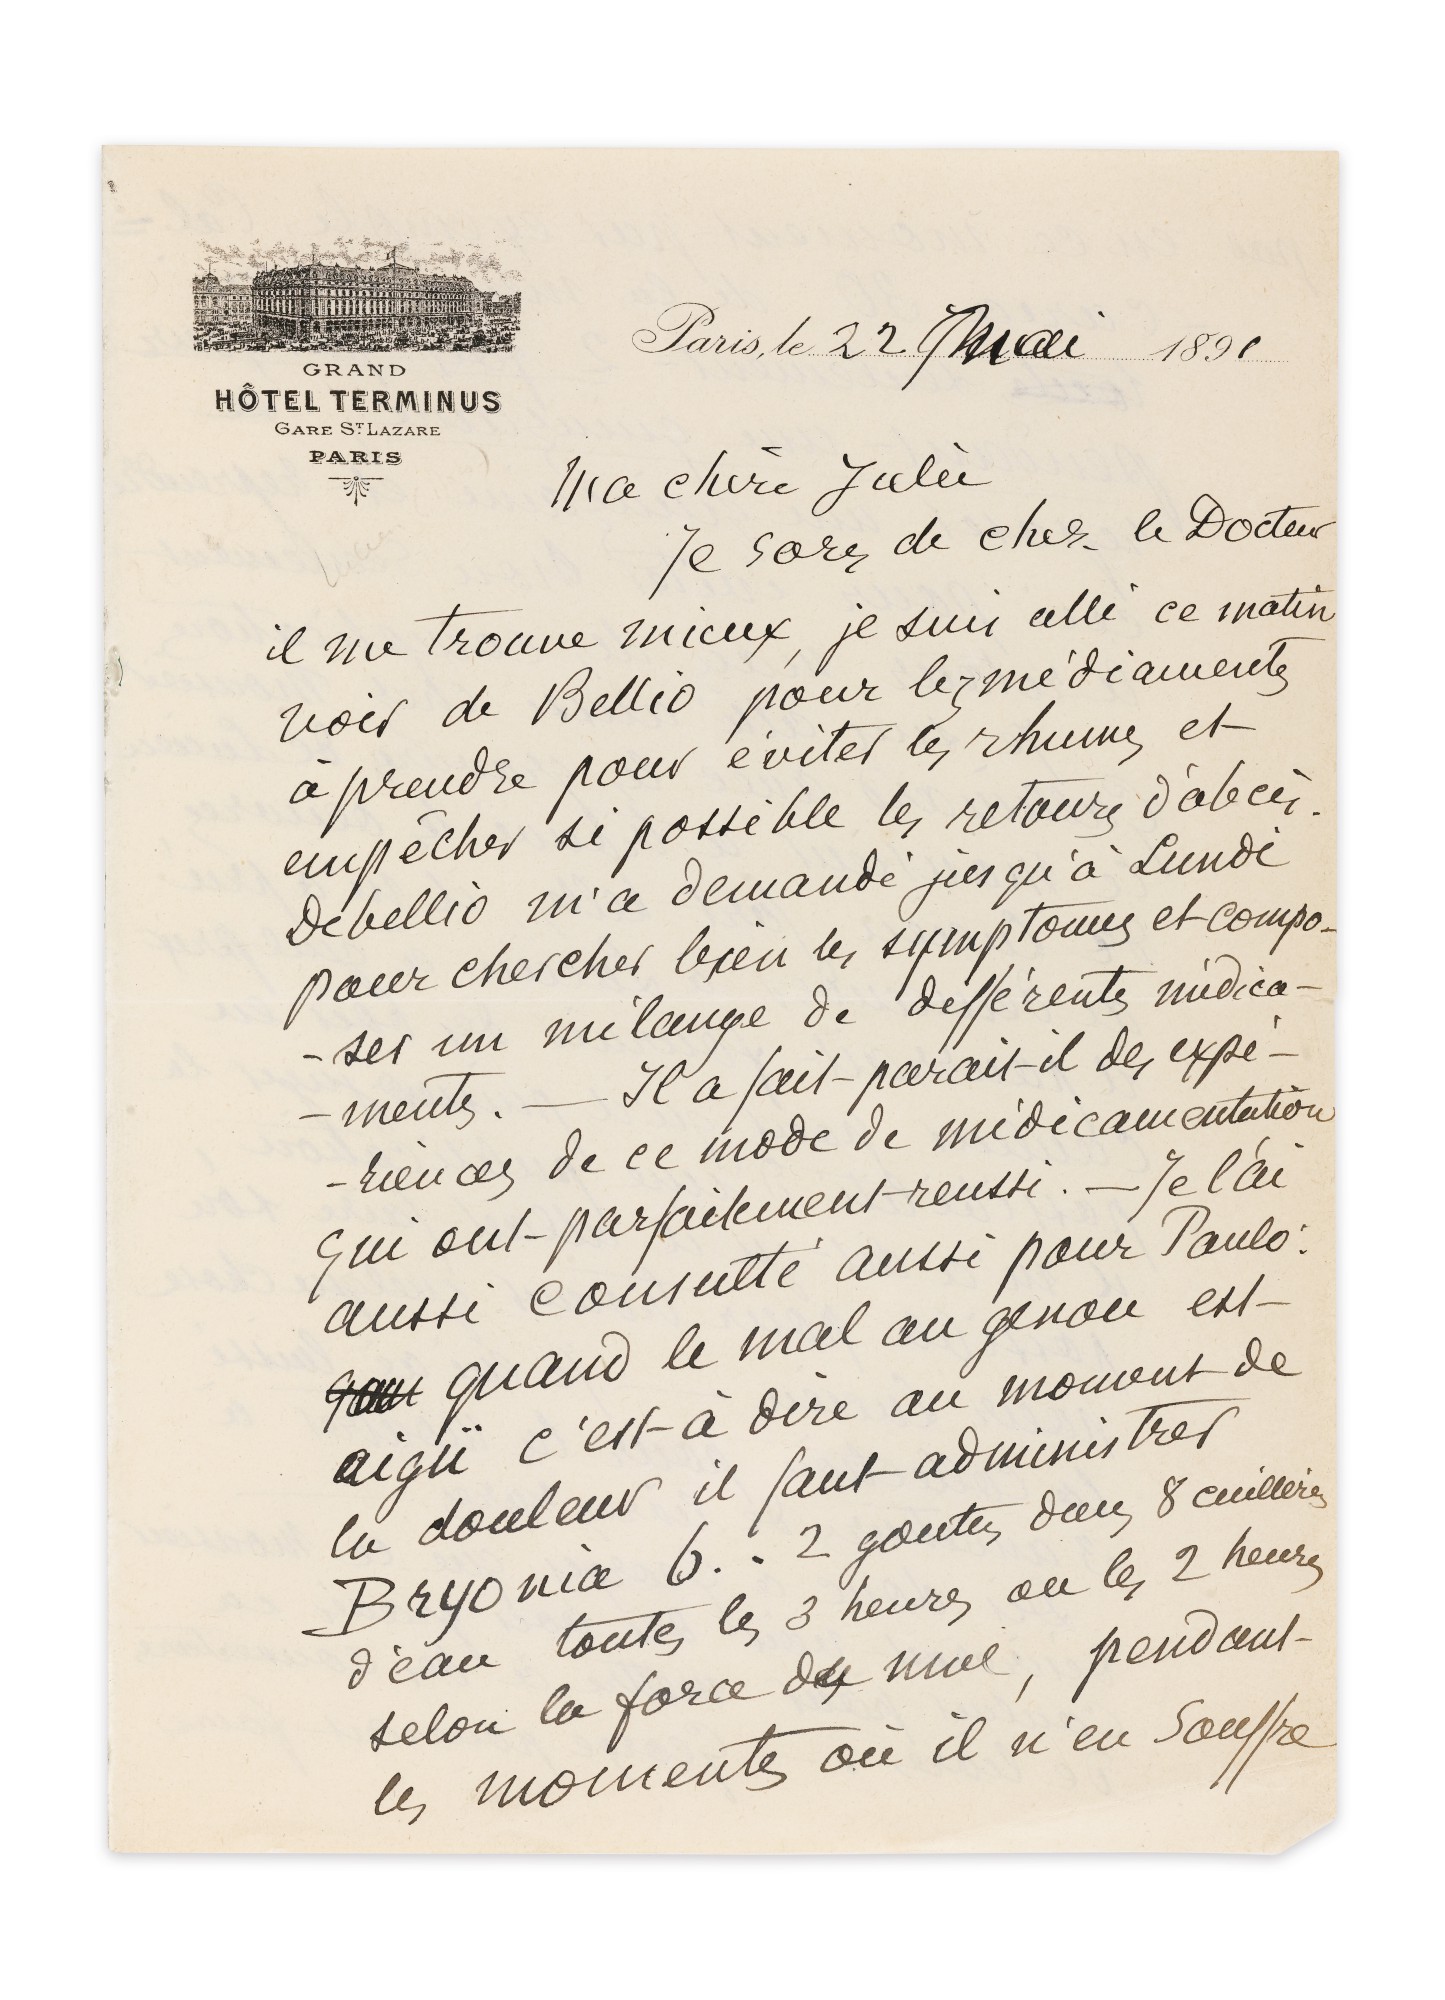 GRAND
HÔTEL TERMINUS
GARE ST LAZARE
PARIS
Paris, le 22 Mai 1891
Ma chère Julie
Je sors de chez le Docteur
il me trouve mieux, je suis allé ce matin
voir de Bellio pour les médiaments
à prendre pour éviter les rhumes et
empêcher si possible les retours d'abcès.
Debellio m'a demandé jusqu'à Lundi
pour chercher bien les symptomes et compo-
-ser un mélange de différents médica-
-ments. — Il a fait parait-il des expé-
-riences de ce mode de médicamentation
qui ont parfaitement reussi. — Je l'ai
aussi consulté aussi pour Paulo:
quand le mal au genou est
aigü c'est à dire au moment de
la douleur il faut administrer
Bryonia 6. . 2 gouttes dans 8 cuillères
d'eau toutes les 3 heures ou les 2 heures
selon la force du mal, pendant
les moments où il n'en souffre